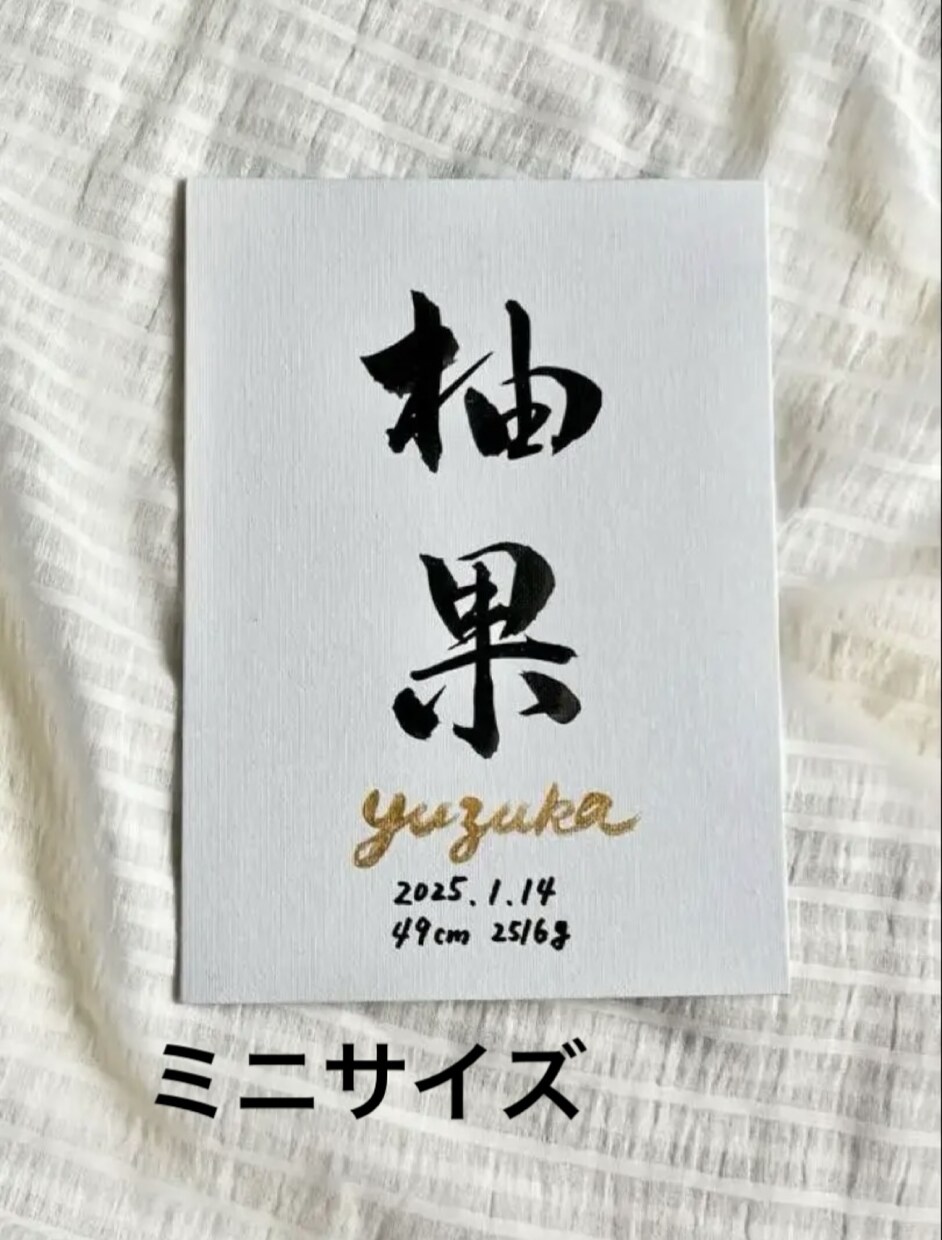 柚
果
yuzuka
2025.1.14
49cm 2516g
ミニサイズ